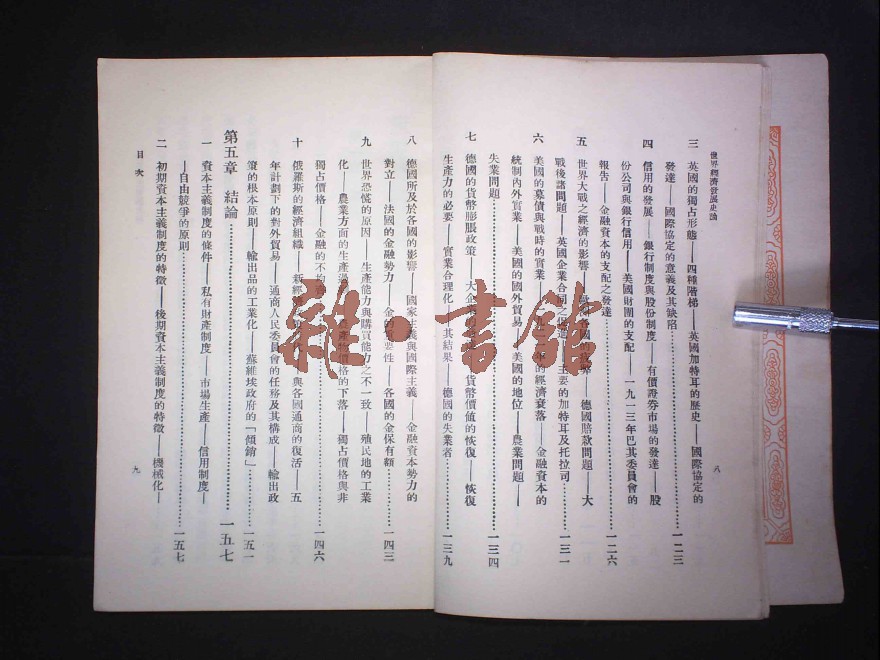 世界經濟發展史論
三 英國的獨占形態——四種階梯——英國加特耳的歷史——國際協定的
發達——國際協定的意義及其缺陷……一二三
四 信用的發展——銀行制度與股份制度——有價證券市場的發達——股
份公司與銀行信用——美國財團的支配——一九一三年巴其委員會的
報告——金融資本的支配之發達……一二六
五 世界大戰之經濟的影響——德國賠款問題——大
戰後諸問題——英國企業合同之促進——主要的加特耳及托拉司……一三一
六 美國的募債與戰時的實業——的經濟衰落——金融資本的
統制內外實業——美國的國外貿易——美國的地位——農業問題——
失業問題……一三四
七 德國的貨幣膨脹政策——大企業——貨幣價值的恢復——恢復
生產力的必要——實業合理化——其結果——德國的失業者……一三九
八
八 德國所及於各國的影響——國家主義與國際主義——金融資本勢力的
對立——法國的金融勢力——金的重要性——各國的金保有額……一四三
九 世界恐慌的原因——生產能力與購買能力之不一致——殖民地的工業
化——農業方面的生產過——農產物價格的下落——獨占價格與非
獨占價格——金融的不均……一四六
十 俄羅斯的經濟組織——新經濟——與各國通商的復活——五
年計劃下的對外貿易——通商人民委員會的任務及其構成——輸出政
策的根本原則——輸出品的工業化——蘇維埃政府的「傾銷」……一五一
第五章 結論……一五七
一 資本主義制度的條件——私有財產制度——市場生產——信用制度——
——自由競爭的原則……一五七
二 初期資本主義制度的特徵——後期資本主義制度的特徵——機械化——
目次
九
雜·書館